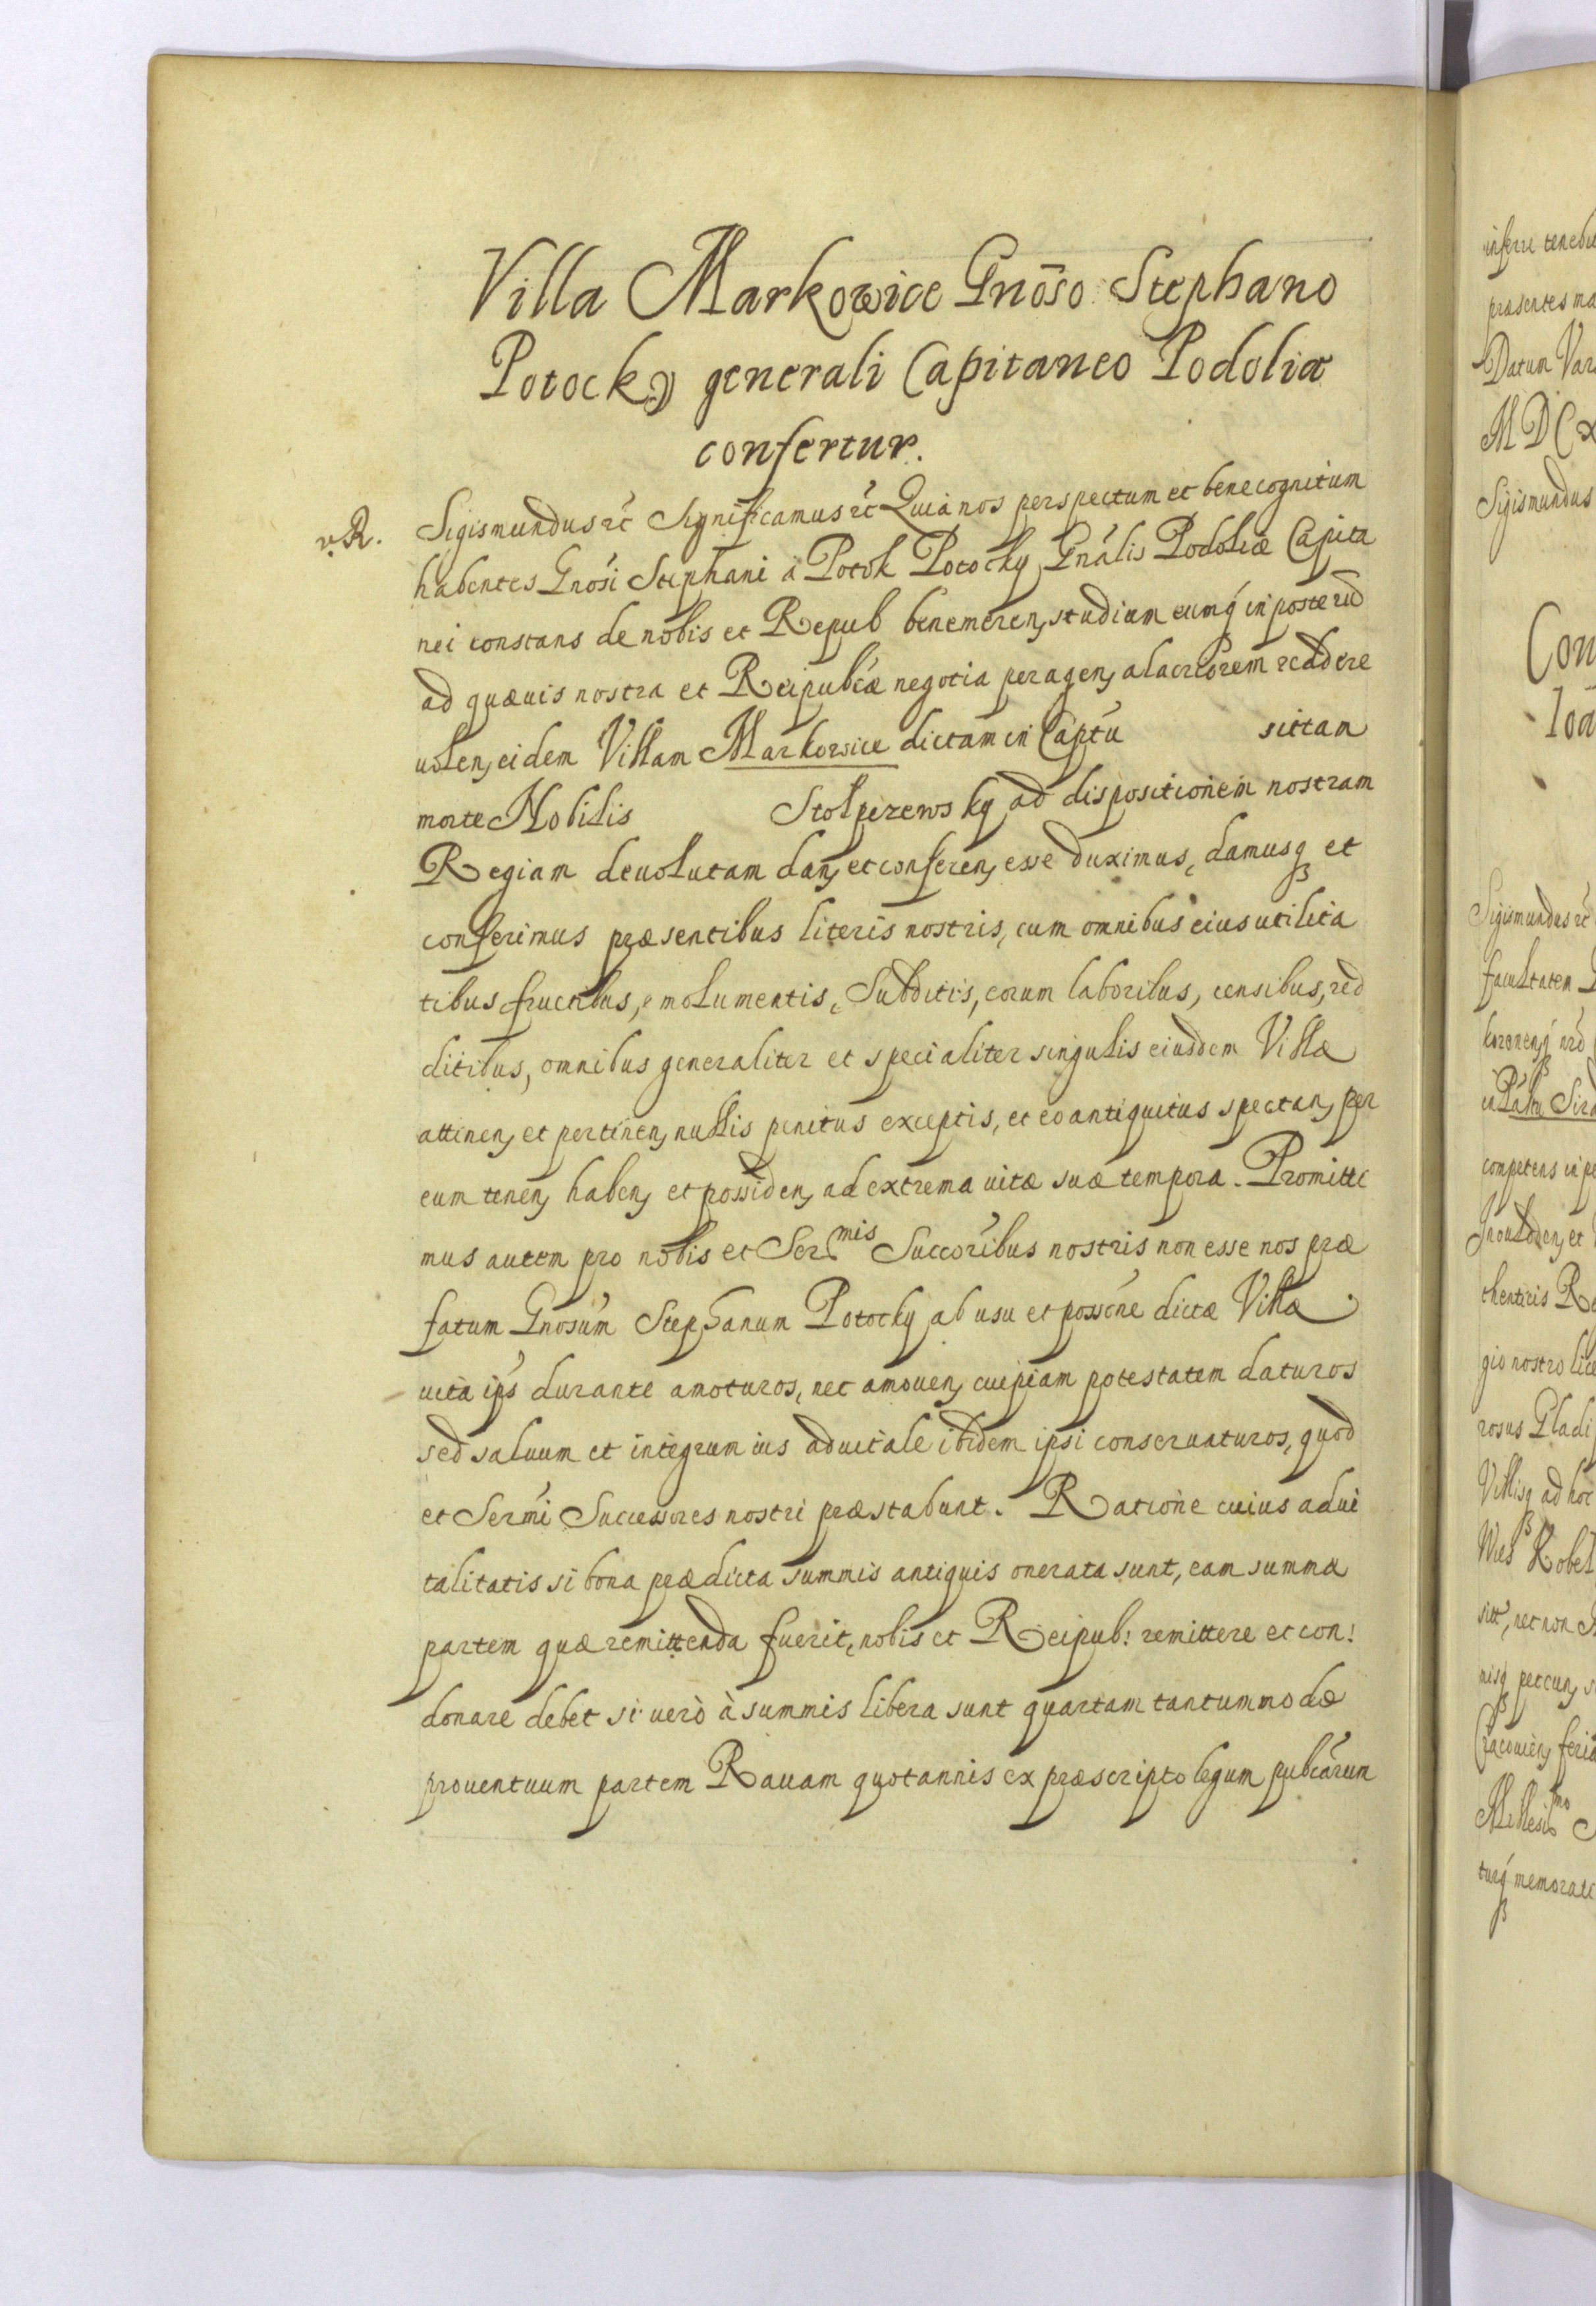 Villa Markowice Gnōso Stephano
Potocky generali Capitaneo Podoliæ
confertur.
v. R.
Sigismundus etc Significamus etc Quia nos perspectum et bene cognitum
habentes Gnosi Stephani à Potok Potocky Gnalis Podoliæ Capita
nei constans de nobis et Repub benemeren, studium eumq in posterū
ad quæuis nostra et Reipubcæ negotia peragen, alacriorem reddere
uolen, eidem Villam Markowice dictam in Captu sittam
morte Nobilis Stolpezewsky ad dispositionem nostram
Regiam deuolutam dan, et conferen, esse duximus, damusq et
conferimus præsentibus literis nostris, cum omnibus eius utilita
tibus fructibus, emolumentis, Subditis, eorum laboribus, censibus, red
ditibus, omnibus generaliter et specialiter singulis eiusdem Villæ
attinen, et pertinen, nullis penitus exceptis, et eo antiquitus spectan, per
eum tenen, haben, et possiden, ad extrema uitæ suæ tempora. Promitti
mus autem pro nobis et Ser.mis Succoribus nostris non esse nos præ
fatum Gnosum Stephanum Potocky ab usu et possone dictæ Villæ
uita ips durante amoturos, nec amouen, cuipiam potestatem daturos
sed saluum et integrum ius aduitale ibidem ipsi conseruaturos, quod
et Sermi Successores nostri præstabunt. Ratione cuius adui
talitatis si bona prædicta summis antiquis onerata sunt, eam summæ
partem quæ remittenda fuerit, nobis et Reipub: remittere et con:
donare debet si uerò à summis libera sunt quartam tantummodo
prouentuum partem Rauam quotannis ex præscripto legum pubcarum
inferre
præsentes
Datum
Sigismundus
Con
Ioa
Sigismundus etc
facultatem
competens in
gio nostro
ad hoc
nec non
memorati